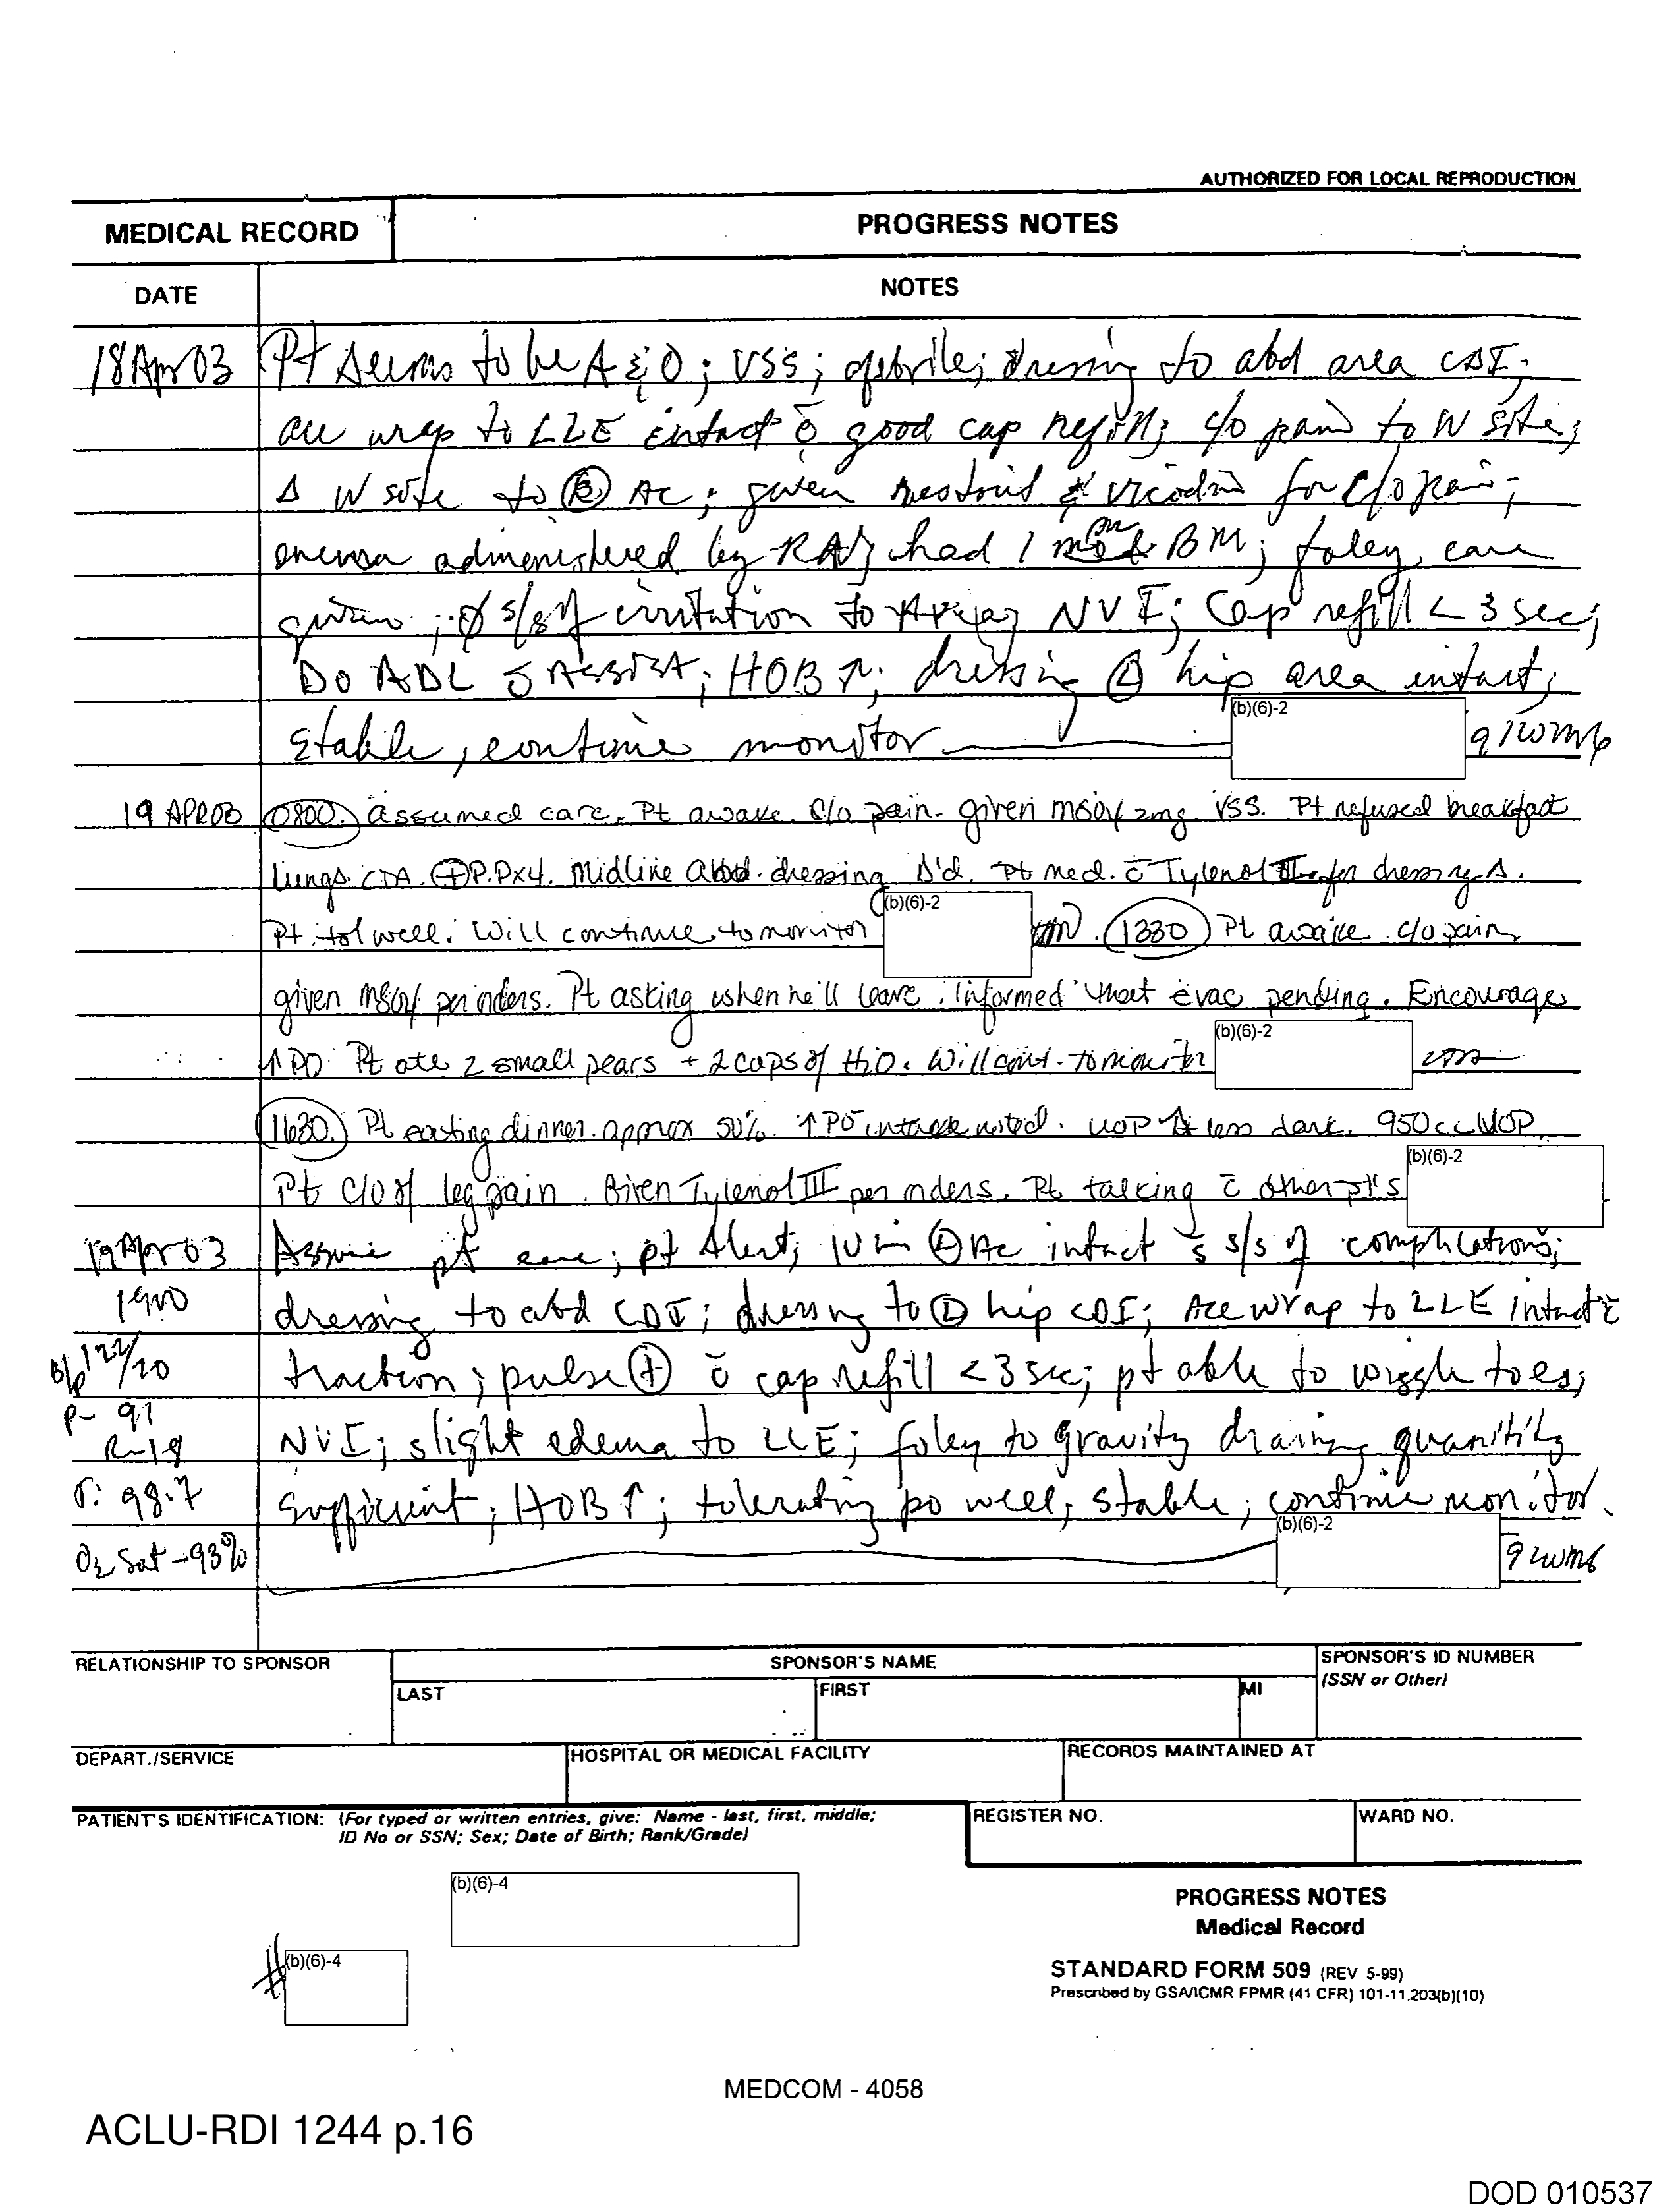 AUTHORIZED FOR LOCAL REPRODUCTION
MEDICAL RECORD
PROGRESS NOTES
DATE
NOTES
18 Apr 03 Pt seems to be A & O; VSS; afebrile; dressing to abd area CDI;
ace wrap to LLE intact c̄ good cap refill; c/o pain to IV site;
Δ IV site to Ⓡ AC; given & vicodin for c/o pain;
enema administered by had 1 BM; foley care
given; Ø s/s of irritation to NVI; Cap refill < 3 sec;
Do ADL s̄ Assist; HOB ↑; dressing Ⓛ hip area intact;
stable, continue monitor (b)(6)-2 91WM6
19 APR 03 0800. assumed care. Pt awake. C/o pain. given MSO4 2mg. VSS. Pt refused breakfast
Lungs CTA. ⊕P.Px4. Midline abd. dressing Δ'd. Pt med. c̄ Tylenol III for dressing Δ.
Pt. tol well. Will continue to monitor (b)(6)-2 1330 Pt awake. c/o pain
given MSO4 per orders. Pt asking when he'll leave. Informed that evac pending. Encourage
↑ PO. Pt ate 2 small pears + 2 cups of H2O. Will cont. to monitor (b)(6)-2
1630. Pt eating dinner. approx 50%. ↑ PO intake noted. UOP less dark. 950cc UOP.
Pt c/o of leg pain. Given Tylenol III per orders. Pt talking c̄ other pt's (b)(6)-2
19 Apr 03 Assume pt care; pt Alert; IV in Ⓛ AC intact s̄ s/s of complications;
1900 dressing to abd CDI; dressing to Ⓛ hip CDI; Ace wrap to LLE intact c̄
B/p 122/70 traction; pulse ⊕ c̄ cap refill < 3 sec; pt able to wiggle toes;
P- 91
R-18 NVI; slight edema to LLE; foley to gravity draining quantity
T: 98.7 sufficient; HOB ↑; tolerating po well; stable; continue monitor.
O2 Sat -93% (b)(6)-2 91WM6
RELATIONSHIP TO SPONSOR
SPONSOR'S NAME
SPONSOR'S ID NUMBER
(SSN or Other)
LAST
FIRST
MI
DEPART./SERVICE
HOSPITAL OR MEDICAL FACILITY
RECORDS MAINTAINED AT
PATIENT'S IDENTIFICATION: (For typed or written entries, give: Name - last, first, middle;
ID No or SSN; Sex; Date of Birth; Rank/Grade)
REGISTER NO.
WARD NO.
(b)(6)-4
# (b)(6)-4
PROGRESS NOTES
Medical Record
STANDARD FORM 509 (REV 5-99)
Prescribed by GSA/ICMR FPMR (41 CFR) 101-11.203(b)(10)
MEDCOM - 4058
ACLU-RDI 1244 p.16
DOD 010537